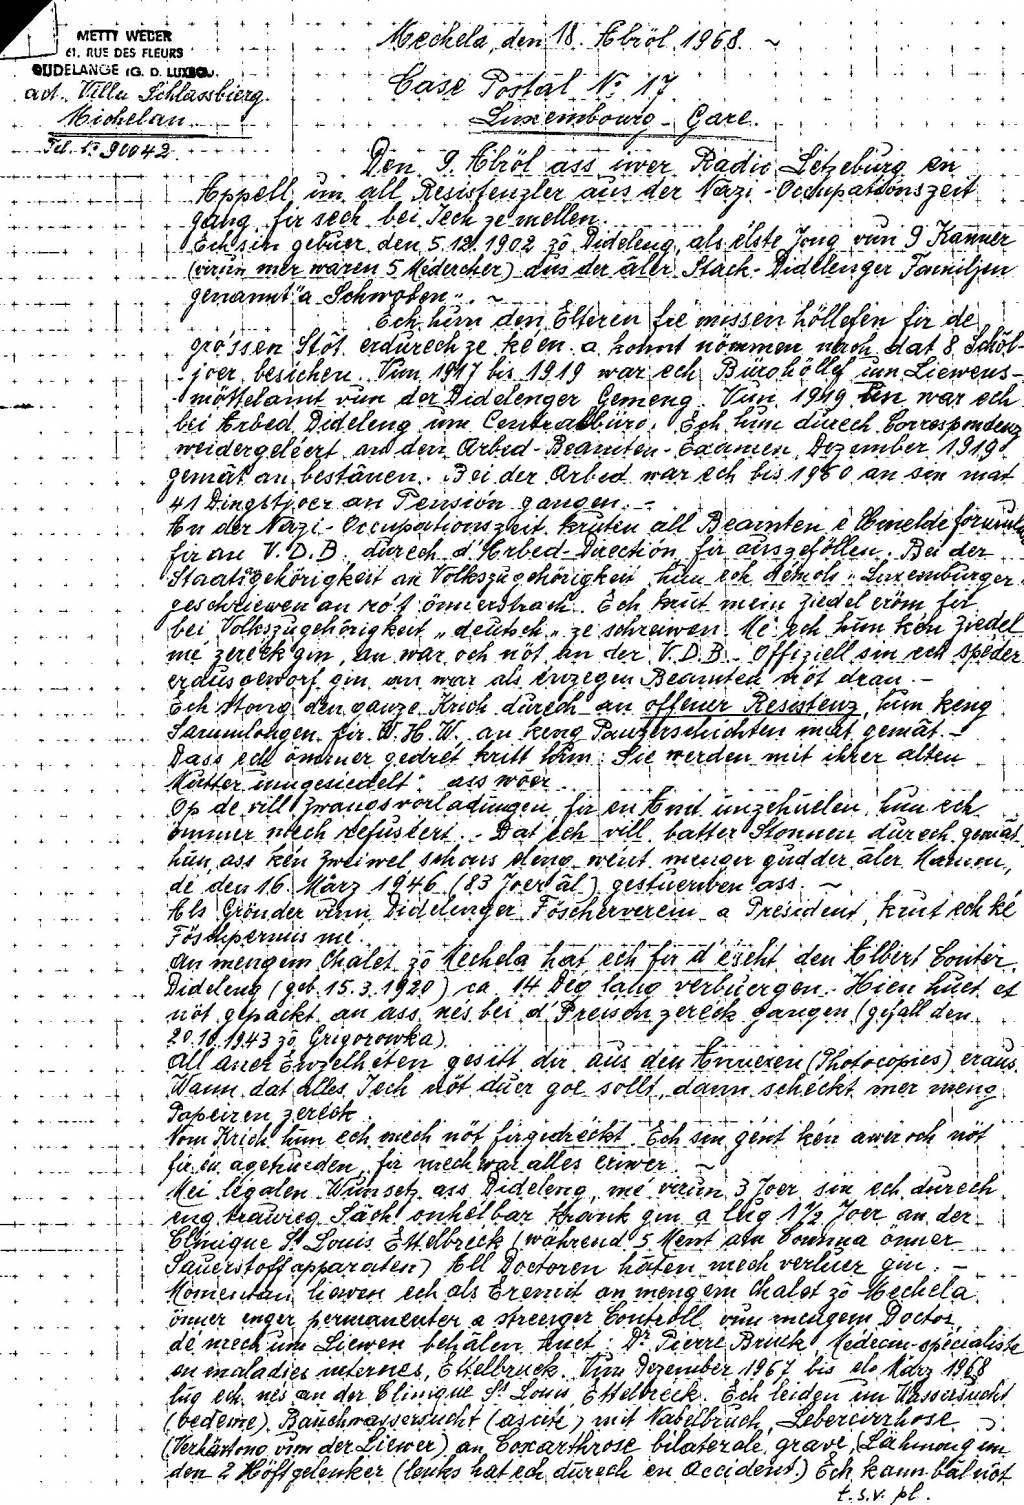 METTY WEBER
61, RUE DES FLEURS
DUDELANGE (G. D. LUXBG.
act. Villa Schlassbierg
Michelau
Tel. No 90042
Mechela, den 18. Abröl 1968. ~
Case Postal No 17
Luxembourg - Gare.
Den 9. Abröl ass iwer Radio Letzeburg en
Appell un all Resistenzler aus der Nazi-Occupationszeit
gang fir sech bei Iech ze mellen.
Ech sin gebuer den 5.12.1902 zö Dideleng, als elste Jong vun 9 Kanner
(virun mer waren 5 Medercher) aus der äler Stack-Didelenger Familjen
genannt "a Schwoben". ~
Ech hun den Elteren fréi missen höllefen fir de
gróssen Stöt erdurech ze kéen a konnt nömmen nach dat 8. Schöl-
joer besichen. Vun 1917 bis 1919 war ech Bürohöllef um Liewens-
möttelamt vun der Didelenger Gemeng. Vun 1919 un war ech
bei Arbed Dideleng um Centralbüro. Ech hun durech Correspondenz
weidergeléert an den Arbed-Beamten-Examen Dezember 1919
gemät an bestänen. Bei der Arbed war ech bis 1960 an sin mat
41 Dingstjoer an Pensión gangen. -
An der Nazi-Occupationszeit kruten all Beamten e Umeldeformular
fir an V.D.B. durech d'Arbed-Direction fir auszeföllen. Bei der
Staatsgehörigkeit an Volkszugehörigkeit hun ech demols "Luxemburger"
geschriewen an rót önnerstrach. Ech krut mein Ziedel eröm fir
bei Volkszugehörigkeit "deutsch" ze schreiwen. Mé ech hun kén Ziedel
mé zereck gin, an war och nöt an der V.D.B. Offiziell sin ech speder
erausgeworf gin an war als enzegen Beamten nöt dran. -
Ech stong den ganze Krich durech an offener Resistenz, hun keng
Sammlongen fir W.H.W. an keng Panzerschichten mat gemät. -
Dass ech ömmer gedrét kritt hun: Sie werden mit ihrer alten
Mutter umgesiedelt" ass wóer.
Op de vill Zwangsvorladungen fir en Amt unzehuelen, hun ech
ömmer mech refusiert. - Dat ech vill batter Stonnen durech gemät
hun, ass kén Zweiwel schons eleng wéint menger gudder äler Mamm,
dé den 16. März 1946 (83 Joer äl) gestuerwen ass. ~
Als Grönder vum Didelenger Föscherverein a President, krut ech ké
Föschpermis mé.
An mengem Chalet zö Mechela hat ech fir d'éischt den Albert Conter
Dideleng (geb. 15.3.1920) ca. 14 Deg lang verbuergen. Hien huet et
nöt gepackt an ass nés bei d'Preisen zereck gangen (gefall den
20.10.1943 zö Grigorowka).
All aner Enzelheten gesitt dir aus den Annexen (Photocopies) eraus.
Wann dat alles Iech nöt duer goe sollt, dann scheckt mer meng
Papeiren zereck.
Vom Krich hun ech mech nöt firgedréckt. Ech sin géint kén awer och nöt
fir en agetrueden, fir mech war alles eriwer. ~
Mei legalen Wunsetz ass Dideleng, mé virun 3 Joer sin ech durech
eng traureg Säch onhélbar krank gin a lug 1 1/2 Joer an der
Clinique St Louis Ettelbreck (während 5 Ment am Comma önner
Sauerstoffapparaten) All Doctoren haten mech verluer gin. -
Momentan liewen ech als Eremit an mengem Chalet zö Mechela
önner enger permanenter a strenger Controll vun mengem Doctor,
dé mech um Liewen behälen huet: Dr Pierre Bruck, Médecin-spécialiste
en maladies internes, Ettelbruck. Vun Dezember 1967 bis elo März 1968
lug ech nés an der Clinique St Louis Ettelbreck. Ech leiden un Wassersucht
(oedeme), Bauchwassersucht (ascite) mit Nabelbruch, Lebercirrhose
(Verhärtong vun der Liewer) an Coxarthrose bilaterale, grave, (Lähmong un
den 2 Höftgelenker (lenks hat ech durech en Accident.) Ech kann bäl nöt
t.s.v. pl.